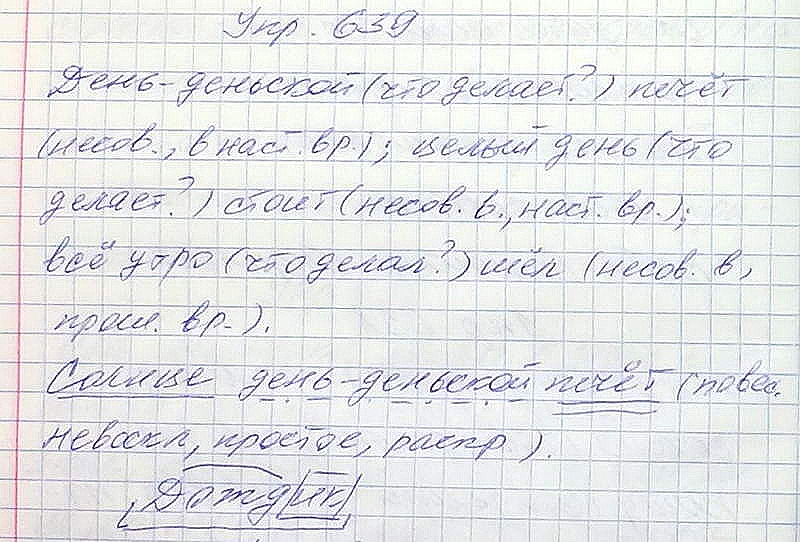 Укр. 639
День-деньской (что делает?) печёт
(несов., в наст. вр.); целый день (что
делает?) стоит (несов. в., наст. вр.);
всё утро (что делал?) шёл (несов. в,
прош. вр.).
Солнце день-деньской печёт (повес.
невоскл, простое, распр.).
Дождик